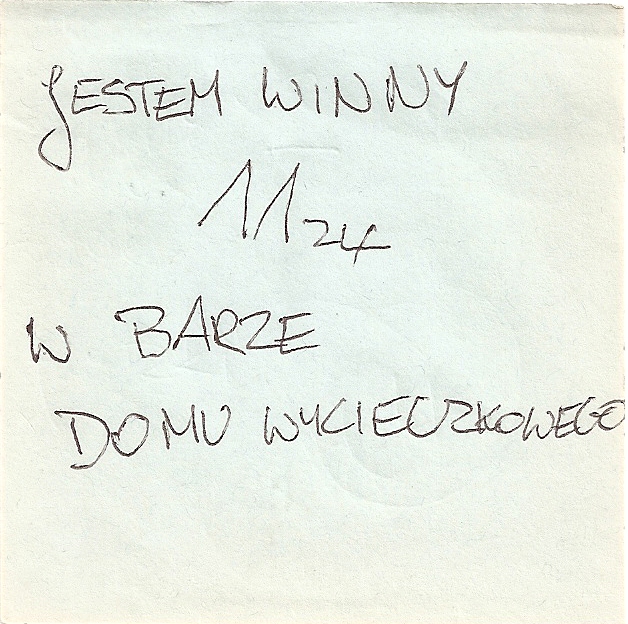 JESTEM WINNY
11 zł
W BARZE
DOMU WYCIECZKOWEGO